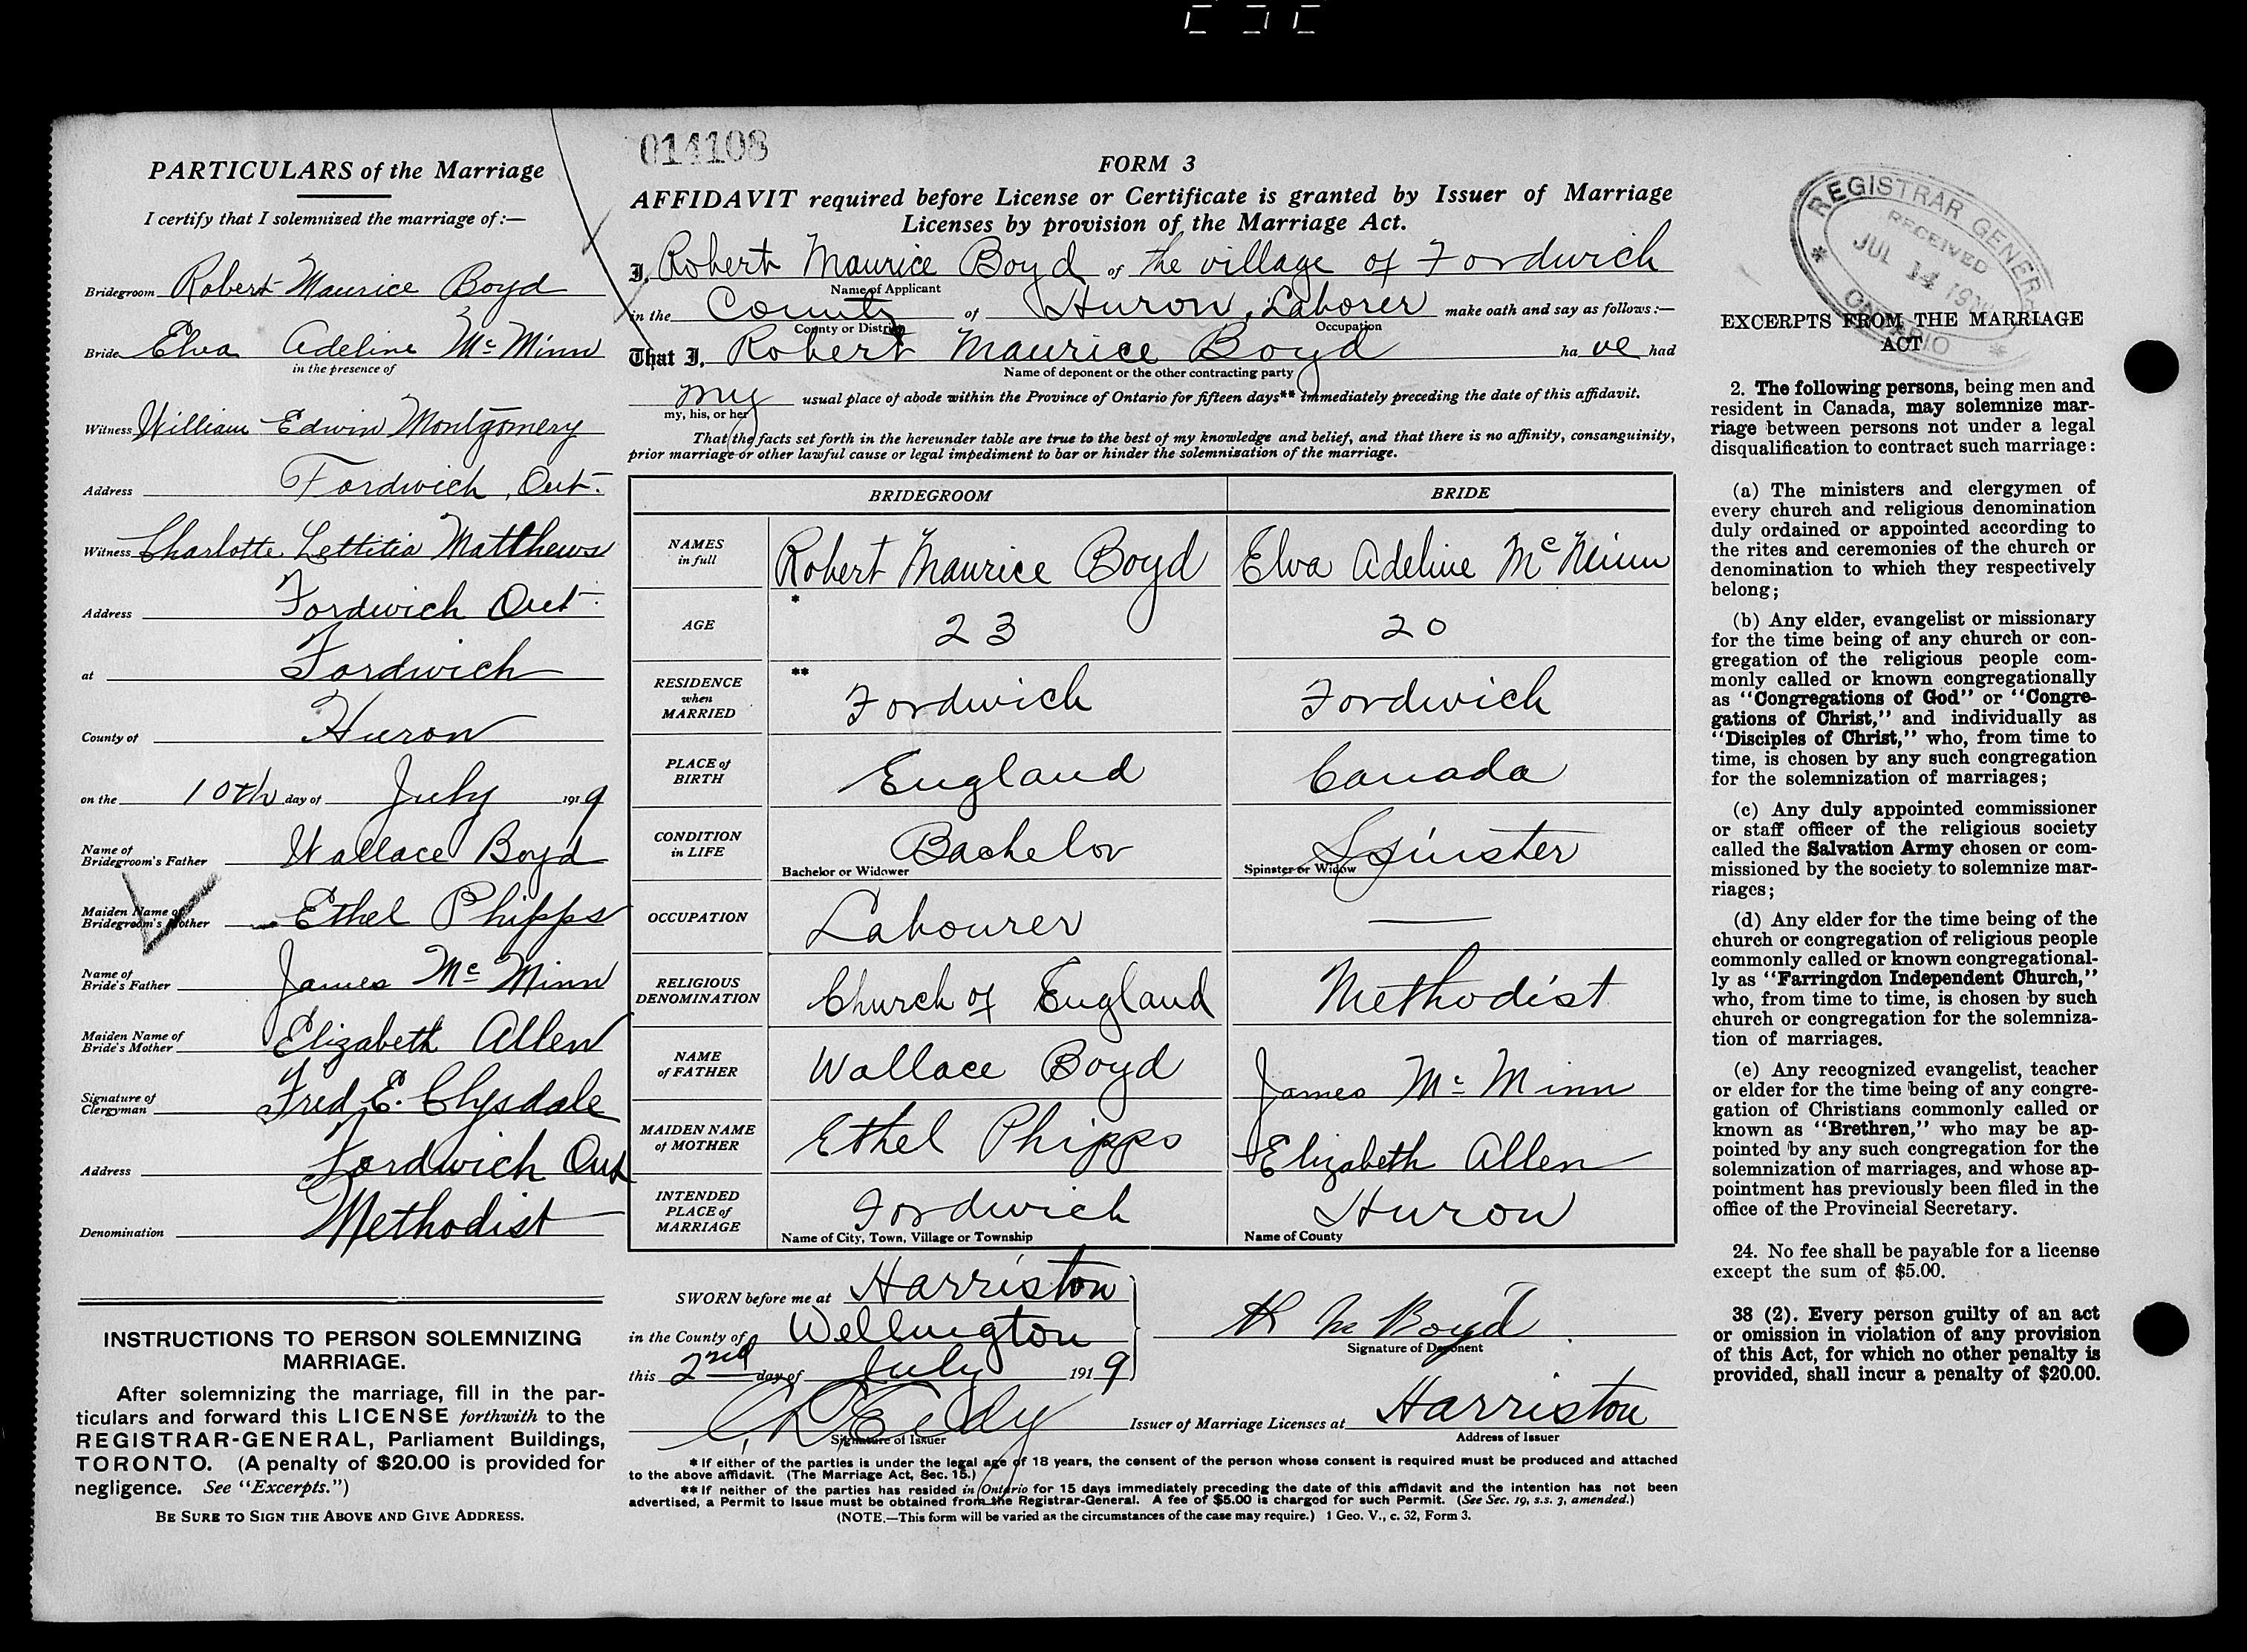 PARTICULARS of the Marriage
I certify that I solemnized the marriage of:—
Bridegroom Robert Maurice Boyd
Bride Elva Adeline McMinn
in the presence of
Witness William Edwin Montgomery
Address Fordwich, Ont.
Witness Charlotte Lettitia Matthews
Address Fordwich Ont.
at Fordwich
County of Huron
on the 10th day of July 1919
Name of
Bridegroom's Father Wallace Boyd
Maiden Name of
Bridegroom's Mother Ethel Phipps
Name of
Bride's Father James McMinn
Maiden Name of
Bride's Mother Elizabeth Allen
Signature of
Clergyman Fred E. Clysdale
Address Fordwich Ont
Denomination Methodist
INSTRUCTIONS TO PERSON SOLEMNIZING
MARRIAGE.
After solemnizing the marriage, fill in the par-
ticulars and forward this LICENSE forthwith to the
REGISTRAR-GENERAL, Parliament Buildings,
TORONTO. (A penalty of $20.00 is provided for
negligence. See "Excerpts.")
BE SURE TO SIGN THE ABOVE AND GIVE ADDRESS.
014108
FORM 3
AFFIDAVIT required before License or Certificate is granted by Issuer of Marriage
Licenses by provision of the Marriage Act.
I, Robert Maurice Boyd of the village of Fordwich
Name of Applicant
in the County of Huron, Laborer make oath and say as follows:—
County or District Occupation
That I, Robert Maurice Boyd ha ve had
Name of deponent or the other contracting party
my usual place of abode within the Province of Ontario for fifteen days** immediately preceding the date of this affidavit.
my, his, or her
That the facts set forth in the hereunder table are true to the best of my knowledge and belief, and that there is no affinity, consanguinity,
prior marriage or other lawful cause or legal impediment to bar or hinder the solemnization of the marriage.
BRIDEGROOM BRIDE
NAMES
in full Robert Maurice Boyd Elva Adeline McMinn
AGE * 23 20
RESIDENCE
when
MARRIED ** Fordwich Fordwich
PLACE of
BIRTH England Canada
CONDITION
in LIFE Bachelor Spinster
Bachelor or Widower Spinster or Widow
OCCUPATION Labourer —
RELIGIOUS
DENOMINATION Church of England Methodist
NAME
of FATHER Wallace Boyd James McMinn
MAIDEN NAME
of MOTHER Ethel Phipps Elizabeth Allen
INTENDED
PLACE of
MARRIAGE Fordwich Huron
Name of City, Town, Village or Township Name of County
SWORN before me at Harriston
in the County of Wellington R M Boyd
Signature of Deponent
this 2nd day of July 1919
Issuer of Marriage Licenses at Harriston
Signature of Issuer Address of Issuer
* If either of the parties is under the legal age of 18 years, the consent of the person whose consent is required must be produced and attached
to the above affidavit. (The Marriage Act, Sec. 15.)
** If neither of the parties has resided in Ontario for 15 days immediately preceding the date of this affidavit and the intention has not been
advertised, a Permit to Issue must be obtained from the Registrar-General. A fee of $5.00 is charged for such Permit. (See Sec. 19, s.s. 3, amended.)
(NOTE.—This form will be varied as the circumstances of the case may require.) 1 Geo. V., c. 32, Form 3.
REGISTRAR GENERAL
RECEIVED
JUL 14
ONTARIO
EXCERPTS FROM THE MARRIAGE
ACT
2. The following persons, being men and
resident in Canada, may solemnize mar-
riage between persons not under a legal
disqualification to contract such marriage:
(a) The ministers and clergymen of
every church and religious denomination
duly ordained or appointed according to
the rites and ceremonies of the church or
denomination to which they respectively
belong;
(b) Any elder, evangelist or missionary
for the time being of any church or con-
gregation of the religious people com-
monly called or known congregationally
as "Congregations of God" or "Congre-
gations of Christ," and individually as
"Disciples of Christ," who, from time to
time, is chosen by any such congregation
for the solemnization of marriages;
(c) Any duly appointed commissioner
or staff officer of the religious society
called the Salvation Army chosen or com-
missioned by the society to solemnize mar-
riages;
(d) Any elder for the time being of the
church or congregation of religious people
commonly called or known congregational-
ly as "Farringdon Independent Church,"
who, from time to time, is chosen by such
church or congregation for the solemniza-
tion of marriages.
(e) Any recognized evangelist, teacher
or elder for the time being of any congre-
gation of Christians commonly called or
known as "Brethren," who may be ap-
pointed by any such congregation for the
solemnization of marriages, and whose ap-
pointment has previously been filed in the
office of the Provincial Secretary.
24. No fee shall be payable for a license
except the sum of $5.00.
38 (2). Every person guilty of an act
or omission in violation of any provision
of this Act, for which no other penalty is
provided, shall incur a penalty of $20.00.